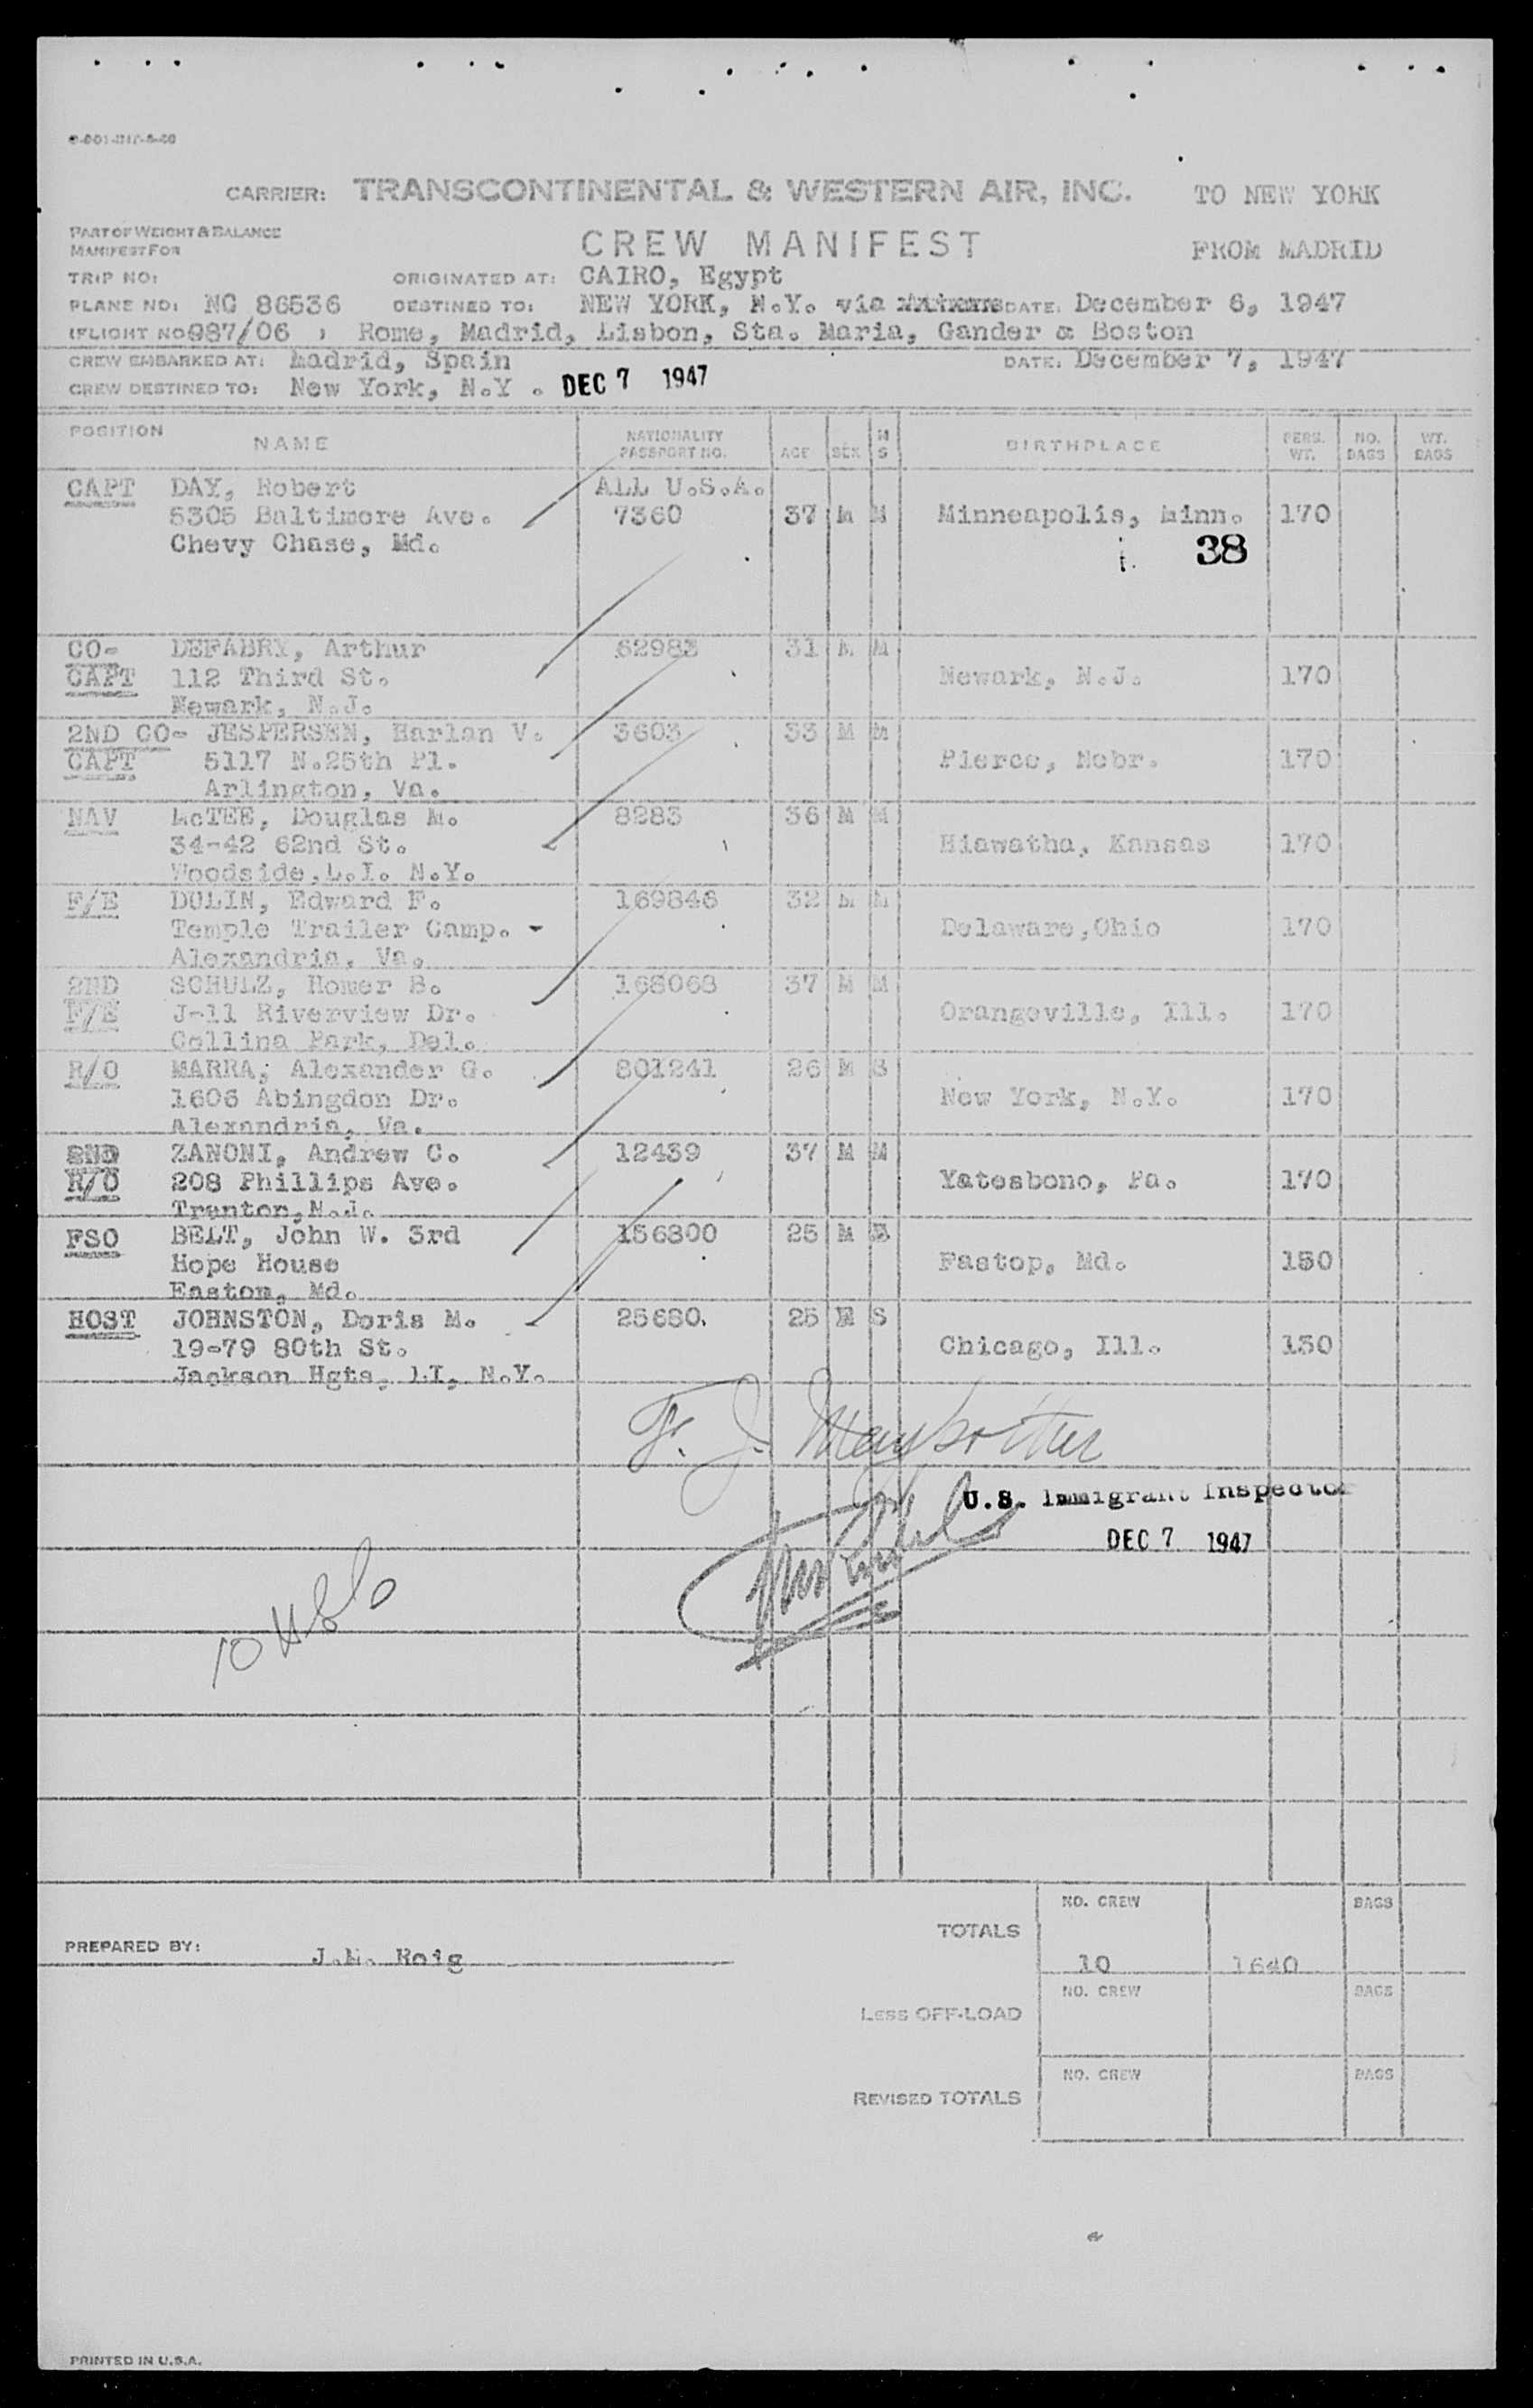 CARRIER: TRANSCONTINENTAL & WESTERN AIR, INC. TO NEW YORK
PART OF WEIGHT & BALANCE
MANIFEST FOR
CREW MANIFEST FROM MADRID
TRIP NO: ORIGINATED AT: CAIRO, Egypt
PLANE NO: NC 86536 DESTINED TO: NEW YORK, N.Y. via DATE: December 6, 1947
(FLIGHT NO 987/06 ) Rome, Madrid, Lisbon, Sta. Maria, Gander & Boston
CREW EMBARKED AT: Madrid, Spain DATE: December 7, 1947
CREW DESTINED TO: New York, N.Y . DEC 7 1947
POSITION NAME NATIONALITY PASSPORT NO. AGE SEX M S BIRTHPLACE PERS. WT. NO. BAGS WT. BAGS
CAPT DAY, Robert ALL U.S.A.
5305 Baltimore Ave. 7360 37 M M Minneapolis, Minn. 170
Chevy Chase, Md. 38
CO- DEFABRY, Arthur 62983 31 M M
CAPT 112 Third St. Newark, N.J. 170
Newark, N.J.
2ND CO- JESPERSEN, Harlan V. 3603 33 M M
CAPT 5117 N.25th Pl. Pierce, Nebr. 170
Arlington, Va.
NAV McTEE, Douglas M. 8283 36 M M
34-42 62nd St. Hiawatha, Kansas 170
Woodside,L.I. N.Y.
F/E DOLIN, Edward F. 169846 32 M M
Temple Trailer Camp. - Delaware,Ohio 170
Alexandria, Va.
2ND SCHULZ, Homer B. 168068 37 M M
F/E J-11 Riverview Dr. Orangeville, Ill. 170
Collina Park, Del.
R/O MARRA, Alexander G. 801241 26 M S
1606 Abingdon Dr. New York, N.Y. 170
Alexandria, Va.
2ND ZANONI, Andrew C. 12439 37 M M
R/O 208 Phillips Ave. Yatesbono, Pa. 170
Trenton,N.J.
FSO BELT, John W. 3rd 156800 25 M S
Hope House Fastop, Md. 150
Easton, Md.
HOST JOHNSTON, Doris M. 25680. 25 F S
19-79 80th St. Chicago, Ill. 130
Jackson Hgts, LI, N.Y.
F. J.
U.S. Immigrant Inspector
DEC 7 1947
10
TOTALS NO. CREW BAGS
PREPARED BY: J.M. Roig
10 1640
LESS OFF-LOAD NO. CREW BAGS
REVISED TOTALS NO. CREW BAGS
PRINTED IN U.S.A.